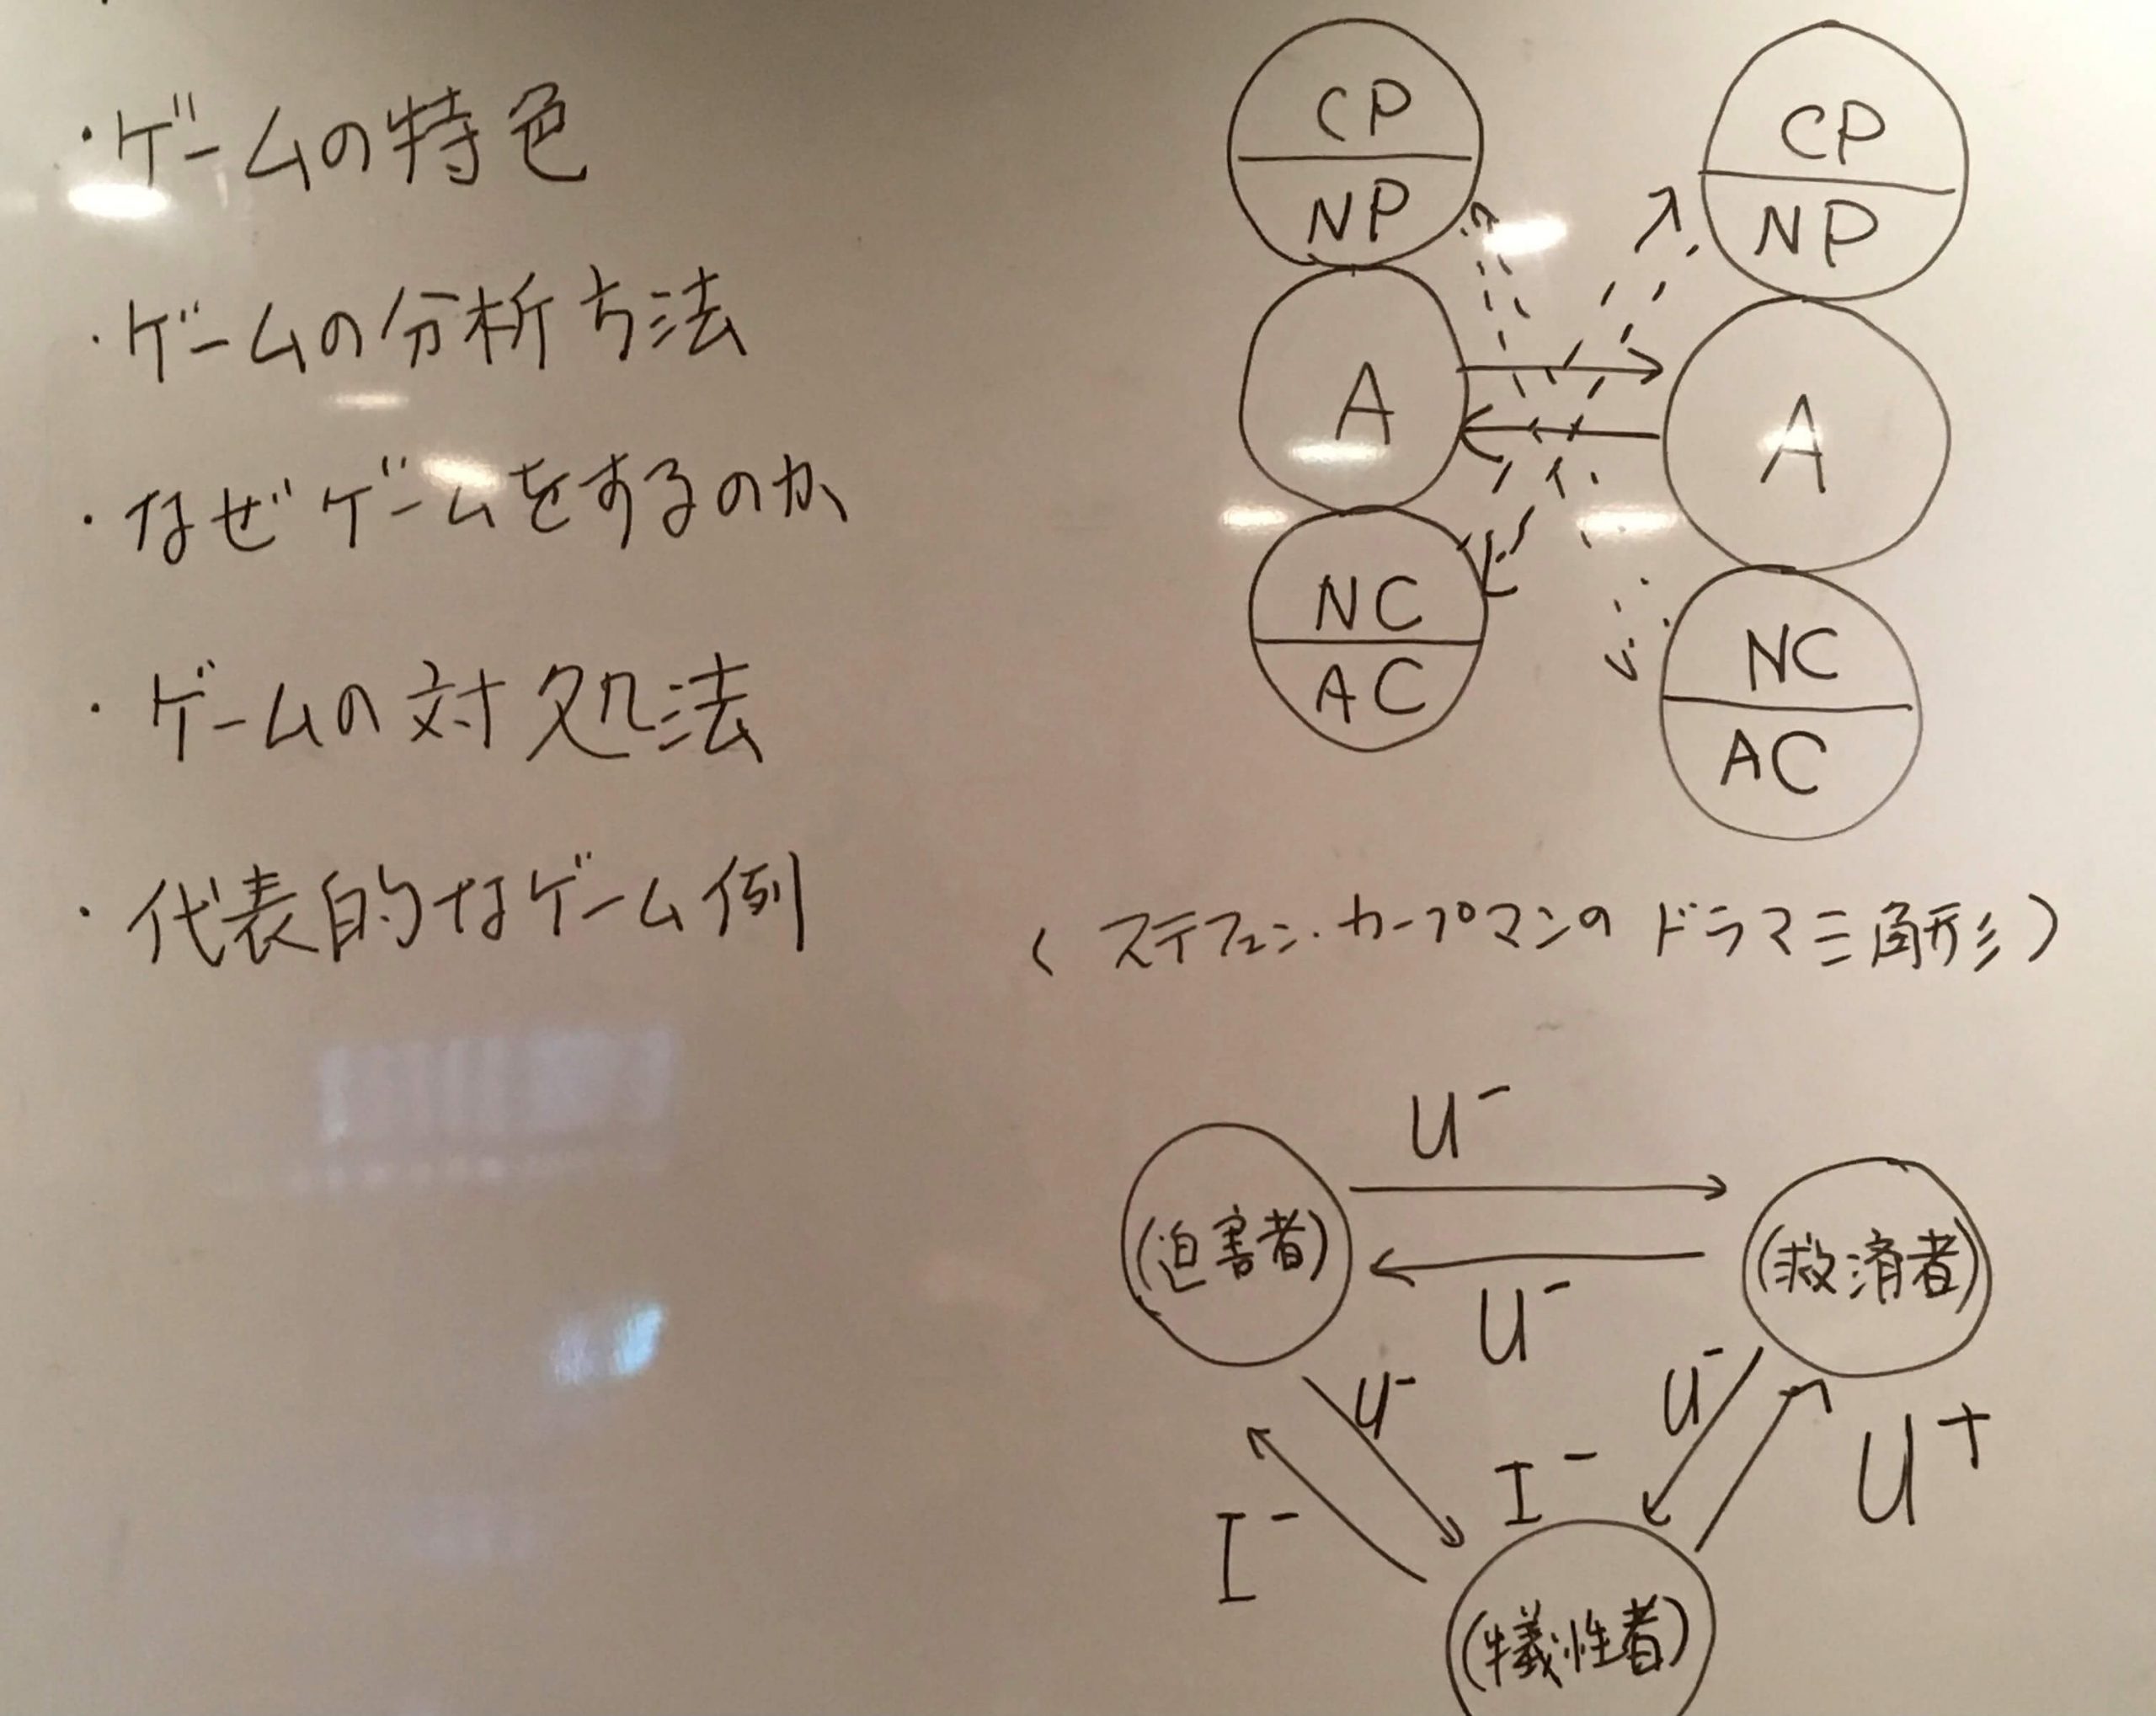 ・ゲームの特色
・ゲームの分析方法
・なぜゲームをするのか
・ゲームの対処法
・代表的なゲーム例
CP
NP
A
NC
AC
CP
NP
A
NC
AC
(ステフェン・カープマンのドラマ三角形)
U⁻
(迫害者)
(救済者)
U⁻
U⁻
U⁻
I⁻
I⁻
U⁺
(犠性者)